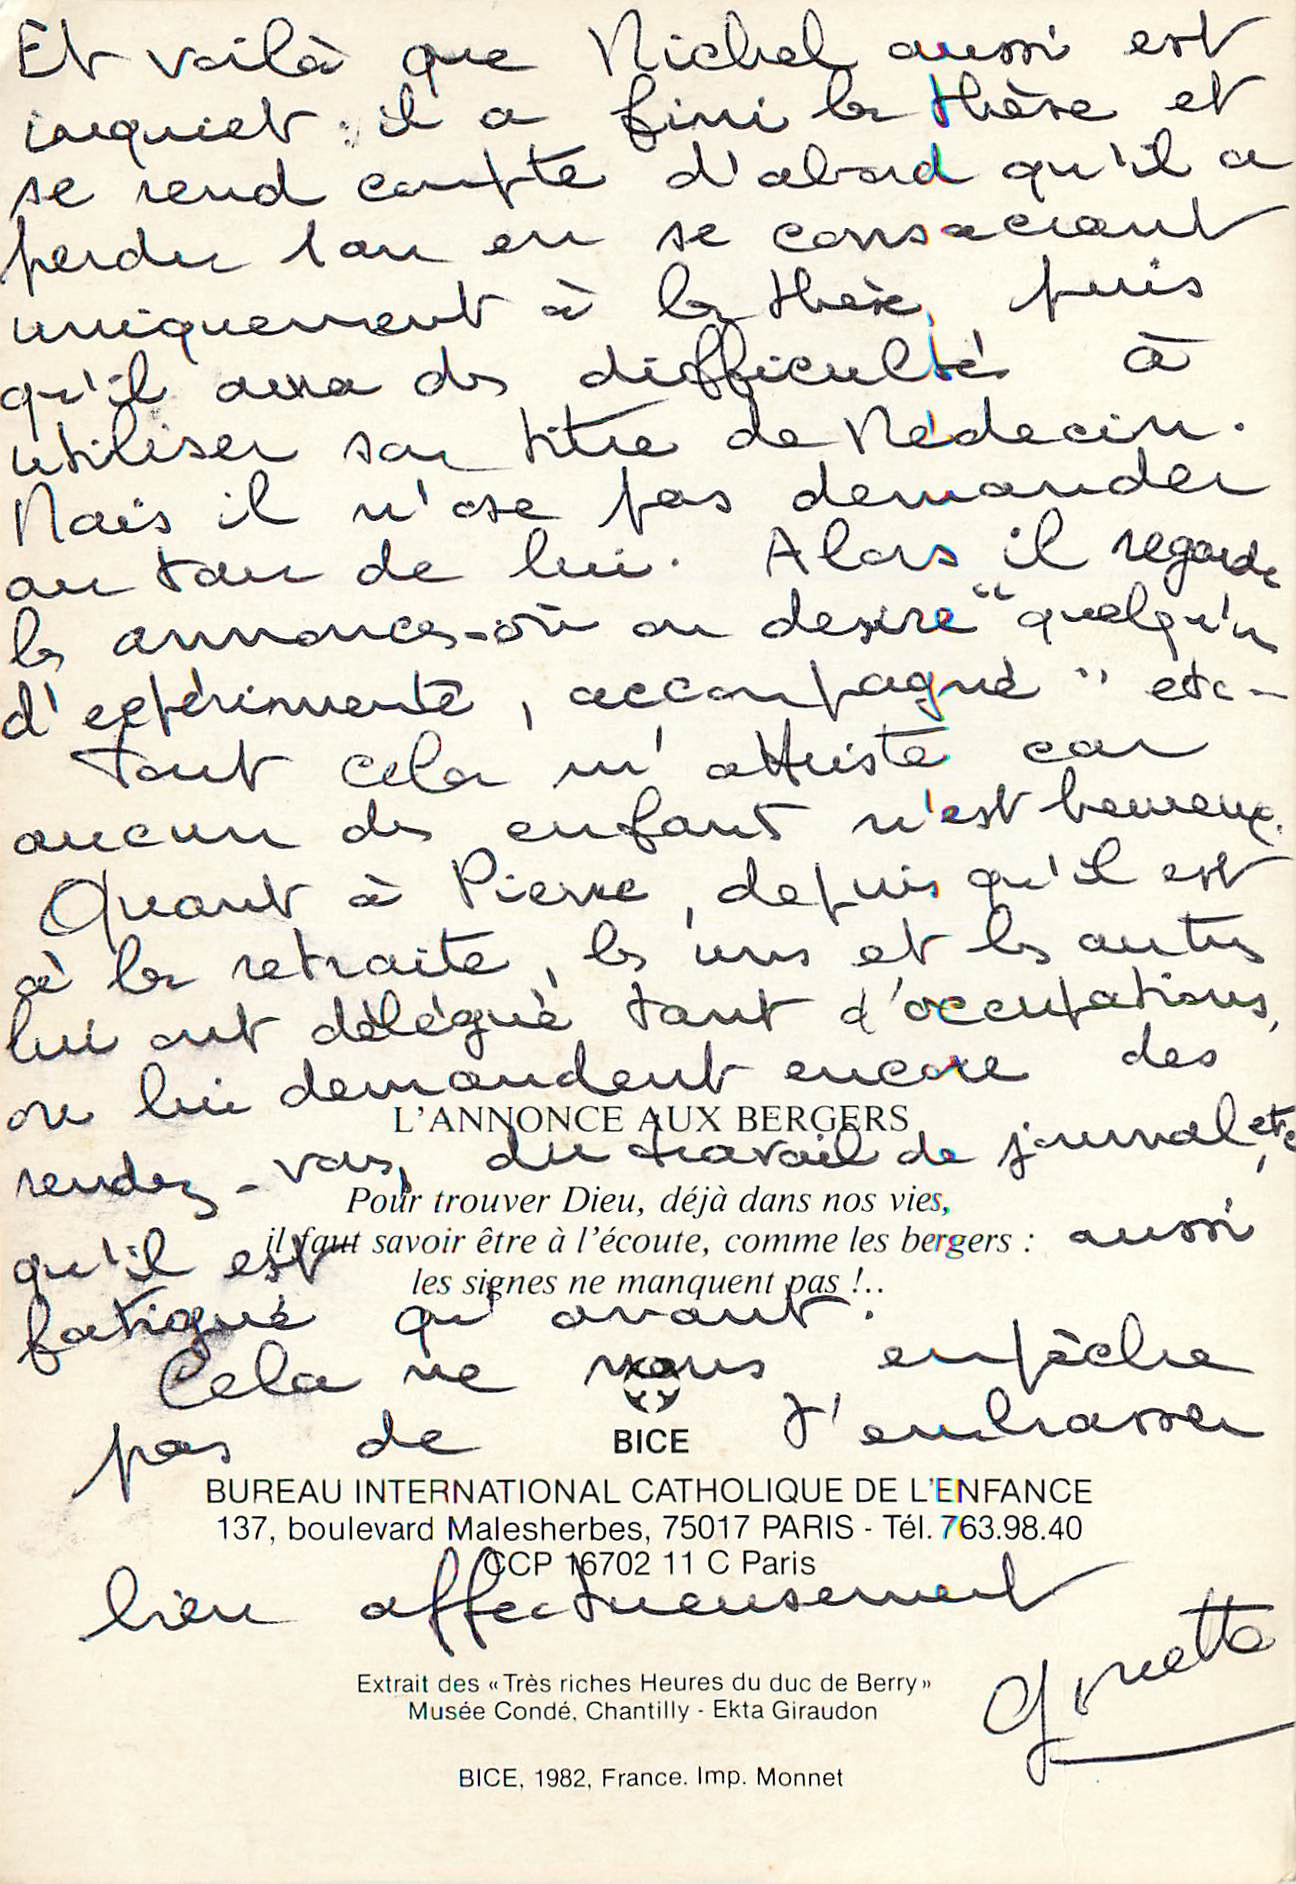 Et voilà que Michel aussi est
inquiet : il a fini la thèse et
se rend compte d'abord qu'il a
perdu 1 an en se consacrant
uniquement à la thèse, puis
qu'il aura des difficultés à
utiliser son titre de Médecin.
Mais il n'ose pas demander
autour de lui. Alors il regarde
les annonces où on desire "quelqu'un
d'expérimenté, accompagné" etc-
Tout cela m'attriste car
aucun des enfants n'est heureux.
Quant à Pierre, depuis qu'il est
à la retraite, les uns et les autres
lui ont délégué tant d'occupations,
ou lui demandent encore des
L'ANNONCE AUX BERGERS
rendez-vous, du travail de journal, etc
Pour trouver Dieu, déjà dans nos vies,
il faut savoir être à l'écoute, comme les bergers :
qu'il est aussi
les signes ne manquent pas !..
fatigué qu'avant.
Cela ne nous empêche
pas de t'embrasser
BICE
BUREAU INTERNATIONAL CATHOLIQUE DE L'ENFANCE
137, boulevard Malesherbes, 75017 PARIS - Tél. 763.98.40
CCP 16702 11 C Paris
bien affectueusement
Ginette
Extrait des « Très riches Heures du duc de Berry »
Musée Condé, Chantilly - Ekta Giraudon
BICE, 1982, France. Imp. Monnet